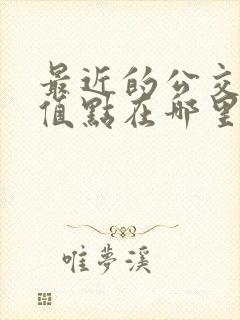 最近的公交
值點在哪里
唯夢溪